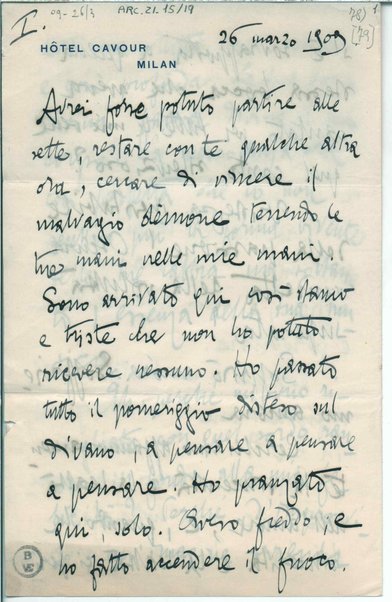 I.
09-26/3
ARC. 21. 15/19
78) 1
[79]
HÔTEL CAVOUR
MILAN
26 marzo 1909
Avrei forse potuto partire alle
sette, restare con te qualche altra
ora, cercare di vincere il
malvagio dèmone tenendo le
tue mani nelle mie mani.
Sono arrivato qui così stanco
e triste che non ho potuto
ricevere nessuno. Ho passato
tutto il pomeriggio disteso sul
divano, a pensare a pensare
a pensare. Ho pranzato
qui, solo. Avevo freddo, e
ho fatto accendere il fuoco.